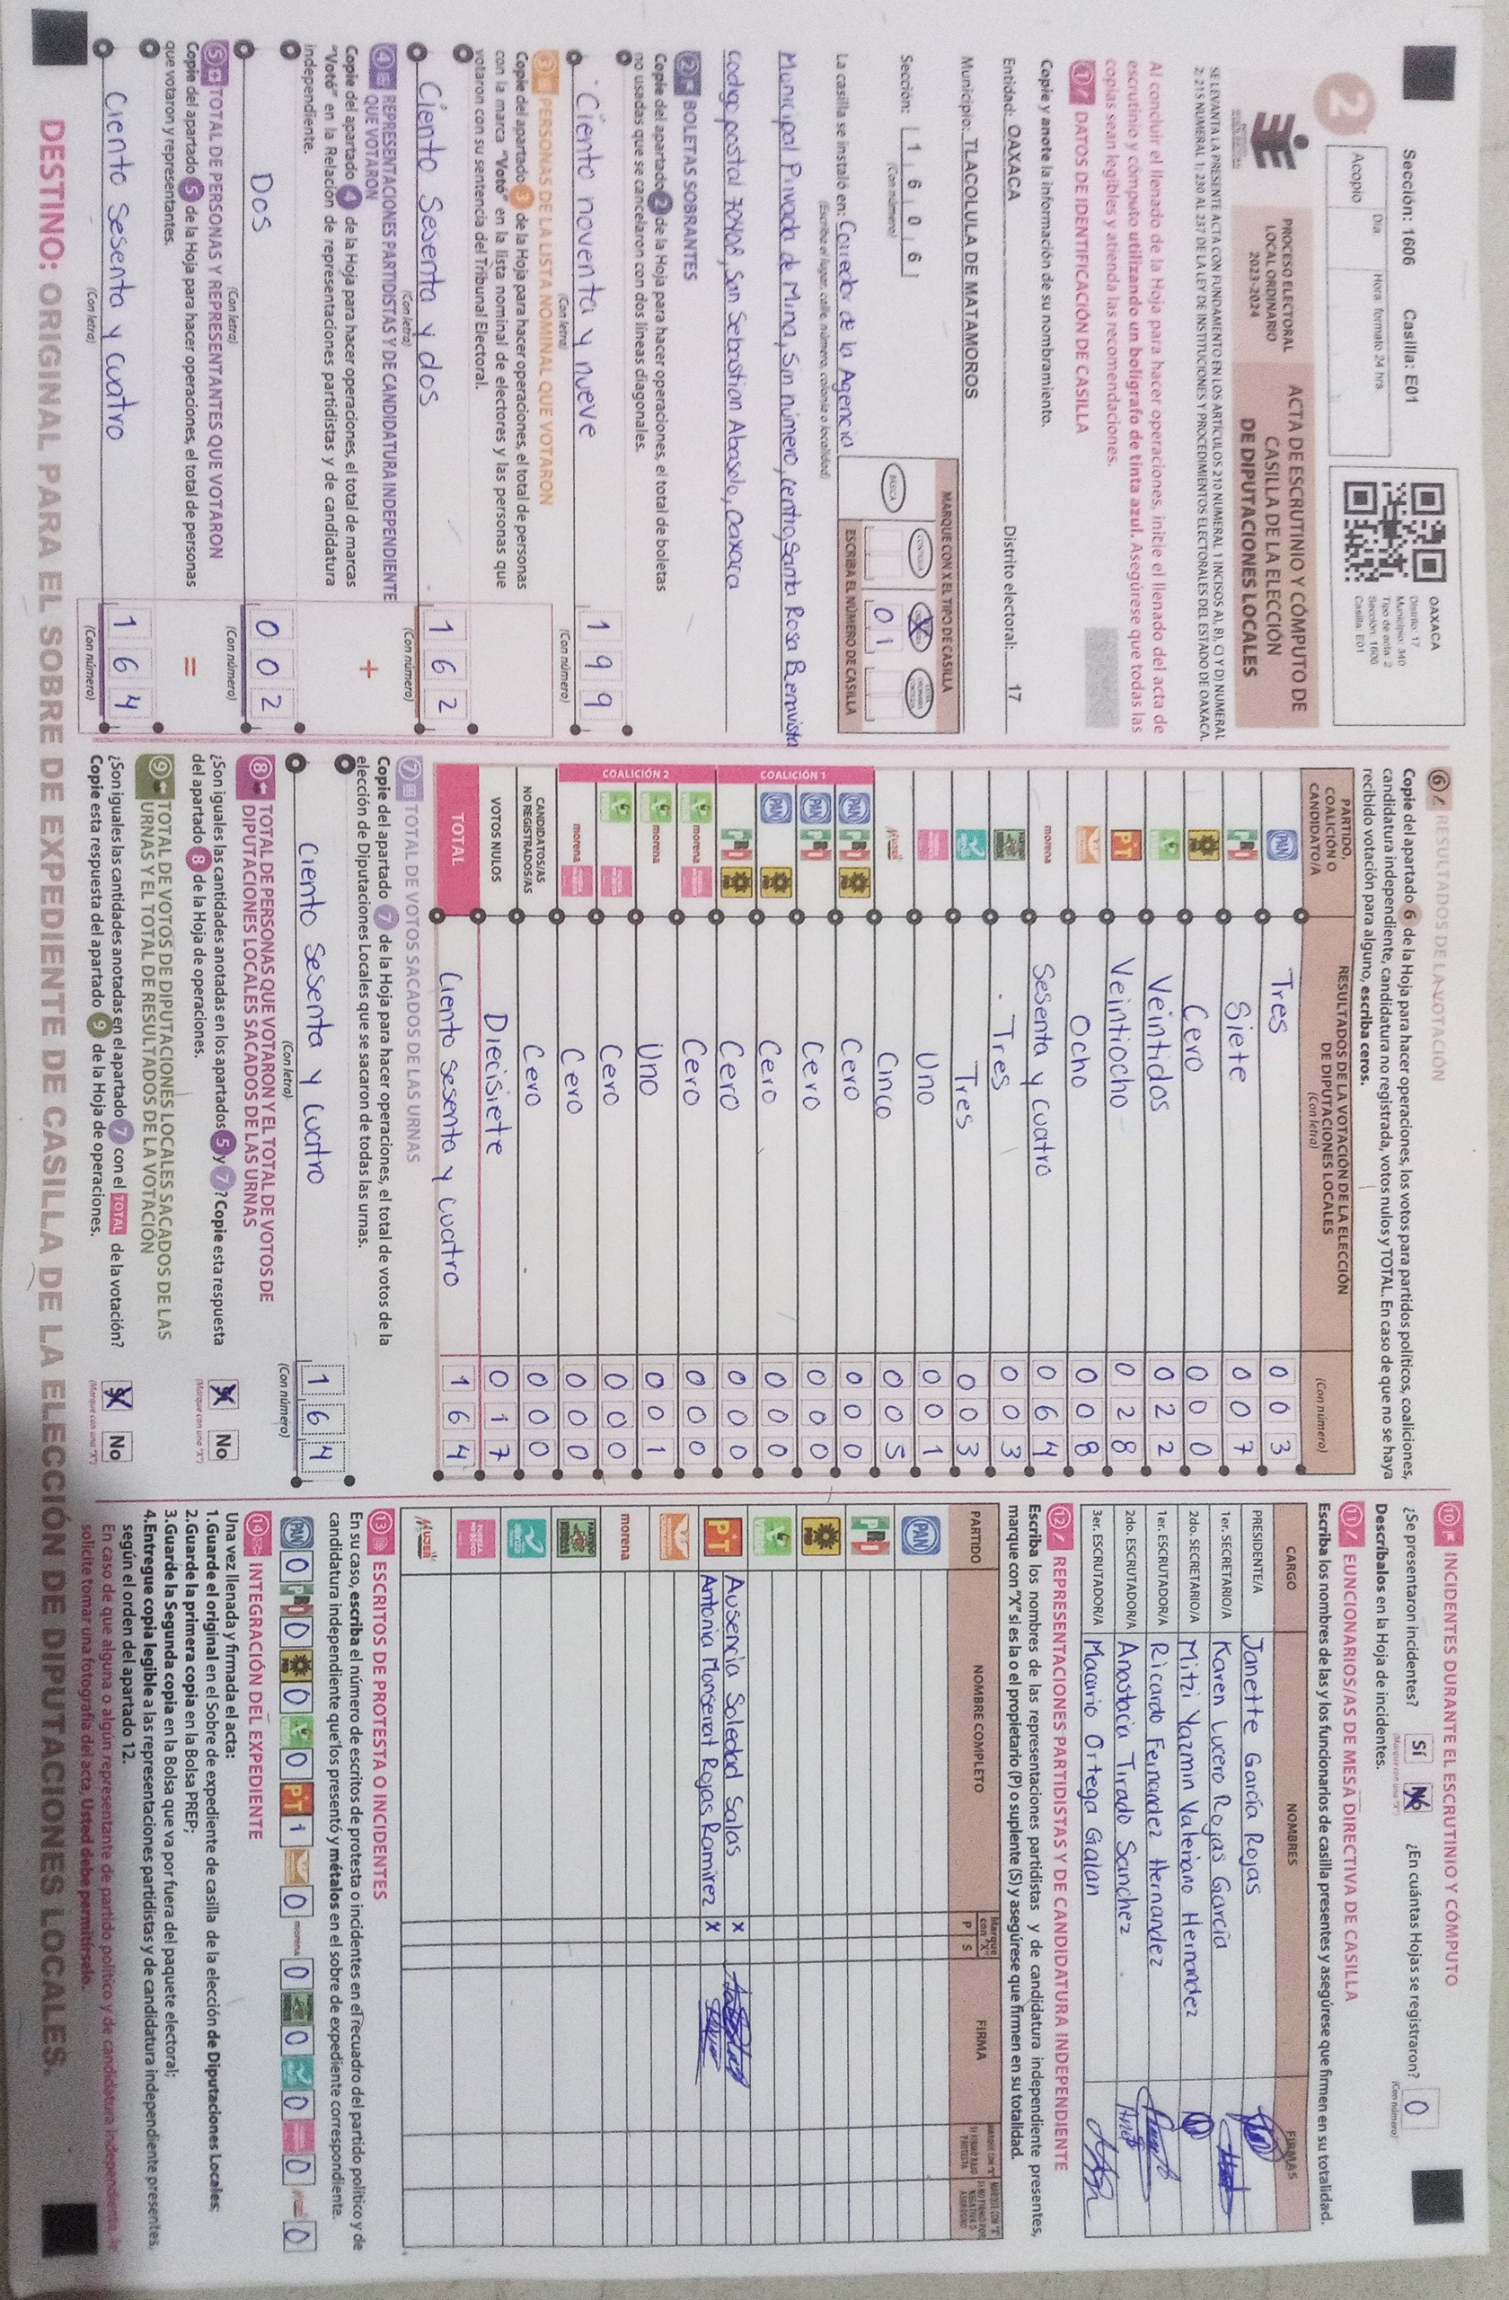 Sección: 1606 Casilla: E01
2
Día:
Hora: formato 24 hrs.
Acopio
OAXACA
Distrito: 17
Municipio: 340
Tipo de acta: 2
Sección: 1606
Casilla: E01
PROCESO ELECTORAL
LOCAL ORDINARIO
2023-2024
ACTA DE ESCRUTINIO Y CÓMPUTO DE
CASILLA DE LA ELECCIÓN
DE DIPUTACIONES LOCALES
SE LEVANTA LA PRESENTE ACTA CON FUNDAMENTO EN LOS ARTÍCULOS 210 NUMERAL 1 INCISOS A), B), C) Y D) NUMERAL
2; 215 NUMERAL 1; 230 AL 237 DE LA LEY DE INSTITUCIONES Y PROCEDIMIENTOS ELECTORALES DEL ESTADO DE OAXACA.
Al concluir el llenado de la Hoja para hacer operaciones, inicie el llenado del acta de
escrutinio y cómputo utilizando un bolígrafo de tinta azul. Asegúrese que todas las
copias sean legibles y atienda las recomendaciones.
1 DATOS DE IDENTIFICACIÓN DE CASILLA
Copie y anote la información de su nombramiento.
Entidad: OAXACA Distrito electoral: 17
Municipio: TLACOLULA DE MATAMOROS
Sección: 1 6 0 6
(Con número)
MARQUE CON X EL TIPO DE CASILLA
BÁSICA
CONTIGUA
X
0 1
ESCRIBA EL NÚMERO DE CASILLA
La casilla se instaló en: Corredor de la Agencia
(Escriba el lugar, calle, número, colonia o localidad)
Municipal Privada de Mina, Sin número, centro, Santa Rosa Buenavista
codigo postal 70408, San Sebastian Abasolo, Oaxaca
2 BOLETAS SOBRANTES
Copie del apartado 2 de la Hoja para hacer operaciones, el total de boletas
no usadas que se cancelaron con dos líneas diagonales.
Ciento noventa y nueve 1 9 9
(Con letra) (Con número)
3 PERSONAS DE LA LISTA NOMINAL QUE VOTARON
Copie del apartado 3 de la Hoja para hacer operaciones, el total de personas
con la marca "Votó" en la lista nominal de electores y las personas que
votaron con su sentencia del Tribunal Electoral.
Ciento Sesenta y dos 1 6 2
(Con letra) (Con número)
4 REPRESENTACIONES PARTIDISTAS Y DE CANDIDATURA INDEPENDIENTE
QUE VOTARON
+
Copie del apartado 4 de la Hoja para hacer operaciones, el total de marcas
"Votó" en la Relación de representaciones partidistas y de candidatura
independiente.
Dos 0 0 2
(Con letra) (Con número)
5 TOTAL DE PERSONAS Y REPRESENTANTES QUE VOTARON
=
Copie del apartado 5 de la Hoja para hacer operaciones, el total de personas
que votaron y representantes.
Ciento Sesenta y cuatro 1 6 4
(Con letra) (Con número)
6 RESULTADOS DE LA VOTACIÓN
Copie del apartado 6 de la Hoja para hacer operaciones, los votos para partidos políticos, coaliciones,
candidatura independiente, candidatura no registrada, votos nulos y TOTAL. En caso de que no se haya
recibido votación para alguno, escriba ceros.
PARTIDO,
COALICIÓN O
CANDIDATO/A
RESULTADOS DE LA VOTACIÓN DE LA ELECCIÓN
DE DIPUTACIONES LOCALES
(Con letra)
(Con número)
PAN Tres 0 0 3
PRI Siete 0 0 7
PRD Cero 0 0 0
Veintidos 0 2 2
PT Veintiocho 0 2 8
Ocho 0 0 8
morena Sesenta y cuatro 0 6 4
Tres 0 0 3
Tres 0 0 3
Uno 0 0 1
Mujer Cinco 0 0 5
COALICIÓN 1
PAN PRI PRD Cero 0 0 0
PAN PRI Cero 0 0 0
PAN PRD Cero 0 0 0
PRI PRD Cero 0 0 0
COALICIÓN 2
morena Cero 0 0 0
morena Uno 0 0 1
Cero 0 0 0
morena Cero 0 0 0
CANDIDATOS/AS
NO REGISTRADOS/AS Cero 0 0 0
VOTOS NULOS Diecisiete 0 1 7
TOTAL Ciento Sesenta y cuatro 1 6 4
7 TOTAL DE VOTOS SACADOS DE LAS URNAS
Copie del apartado 7 de la Hoja para hacer operaciones, el total de votos de la
elección de Diputaciones Locales que se sacaron de todas las urnas.
Ciento Sesenta y Cuatro 1 6 4
(Con letra) (Con número)
8 TOTAL DE PERSONAS QUE VOTARON Y EL TOTAL DE VOTOS DE
DIPUTACIONES LOCALES SACADOS DE LAS URNAS
¿Son iguales las cantidades anotadas en los apartados 5 y 7? Copie esta respuesta
del apartado 8 de la Hoja de operaciones.
X No
(Marque con una "X")
9 TOTAL DE VOTOS DE DIPUTACIONES LOCALES SACADOS DE LAS
URNAS Y EL TOTAL DE RESULTADOS DE LA VOTACIÓN
¿Son iguales las cantidades anotadas en el apartado 7 con el TOTAL de la votación?
Copie esta respuesta del apartado 9 de la Hoja de operaciones.
X No
(Marque con una "X")
10 INCIDENTES DURANTE EL ESCRUTINIO Y CÓMPUTO
¿Se presentaron incidentes? Sí No X ¿En cuántas Hojas se registraron? 0
(Marque con una "X") (Con número)
Descríbalos en la Hoja de incidentes.
11 FUNCIONARIOS/AS DE MESA DIRECTIVA DE CASILLA
Escriba los nombres de las y los funcionarios de casilla presentes y asegúrese que firmen en su totalidad.
CARGO NOMBRES FIRMAS
PRESIDENTE/A Janette García Rojas
1er. SECRETARIO/A Karen Lucero Rojas García
2do. SECRETARIO/A Mitzi Yazmin Valeriano Hernandez
1er. ESCRUTADOR/A Ricardo Fernandez Hernandez
2do. ESCRUTADOR/A Anastacia Tirado Sanchez
3er. ESCRUTADOR/A Macario Ortega Galan
12 REPRESENTACIONES PARTIDISTAS Y DE CANDIDATURA INDEPENDIENTE
Escriba los nombres de las representaciones partidistas y de candidatura independiente presentes,
marque con "X" si es la o el propietario (P) o suplente (S) y asegúrese que firmen en su totalidad.
PARTIDO NOMBRE COMPLETO Marque con "X" P S FIRMA
PAN
PRI
PRD
PT Ausencia Soledad Salas X
Antonia Monserrat Rojas Ramirez X
morena
Mujer
13 ESCRITOS DE PROTESTA O INCIDENTES
En su caso, escriba el número de escritos de protesta o incidentes en el recuadro del partido político y de
candidatura independiente que los presentó y métalos en el sobre de expediente correspondiente.
PAN 0 PRI 0 PRD 0 0 PT 1 0 morena 0 0 0 0 0
14 INTEGRACIÓN DEL EXPEDIENTE
Una vez llenada y firmada el acta:
1.Guarde el original en el Sobre de expediente de casilla de la elección de Diputaciones Locales;
2.Guarde la primera copia en la Bolsa PREP;
3.Guarde la Segunda copia en la Bolsa que va por fuera del paquete electoral;
4.Entregue copia legible a las representaciones partidistas y de candidatura independiente presentes,
según el orden del apartado 12.
En caso de que alguna o algún representante de partido político y de candidatura independiente, le
solicite tomar una fotografía del acta, Usted debe permitírselo.
DESTINO: ORIGINAL PARA EL SOBRE DE EXPEDIENTE DE CASILLA DE LA ELECCIÓN DE DIPUTACIONES LOCALES.